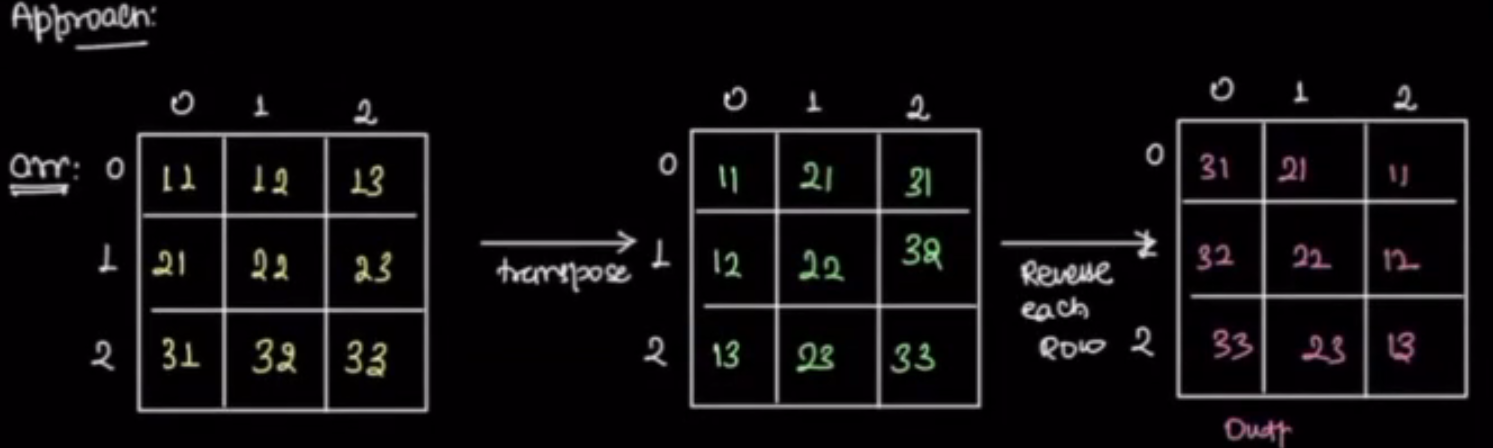 Approach:
0 1 2
arr: 0 11 12 13
1 21 22 23
2 31 32 33
transpose
0 1 2
0 11 21 31
1 12 22 32
2 13 23 33
Reverse
each
Row
0 1 2
0 31 21 11
1 32 22 12
2 33 23 13
Outp